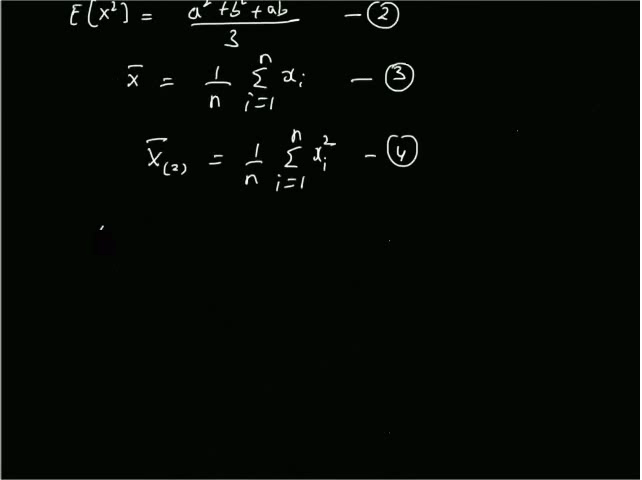 E[X²] = a² + b² + ab / 3 — ②
x̄ = 1/n ∑ᵢ₌₁ⁿ xᵢ — ③
X̄₍₂₎ = 1/n ∑ᵢ₌₁ⁿ xᵢ² — ④